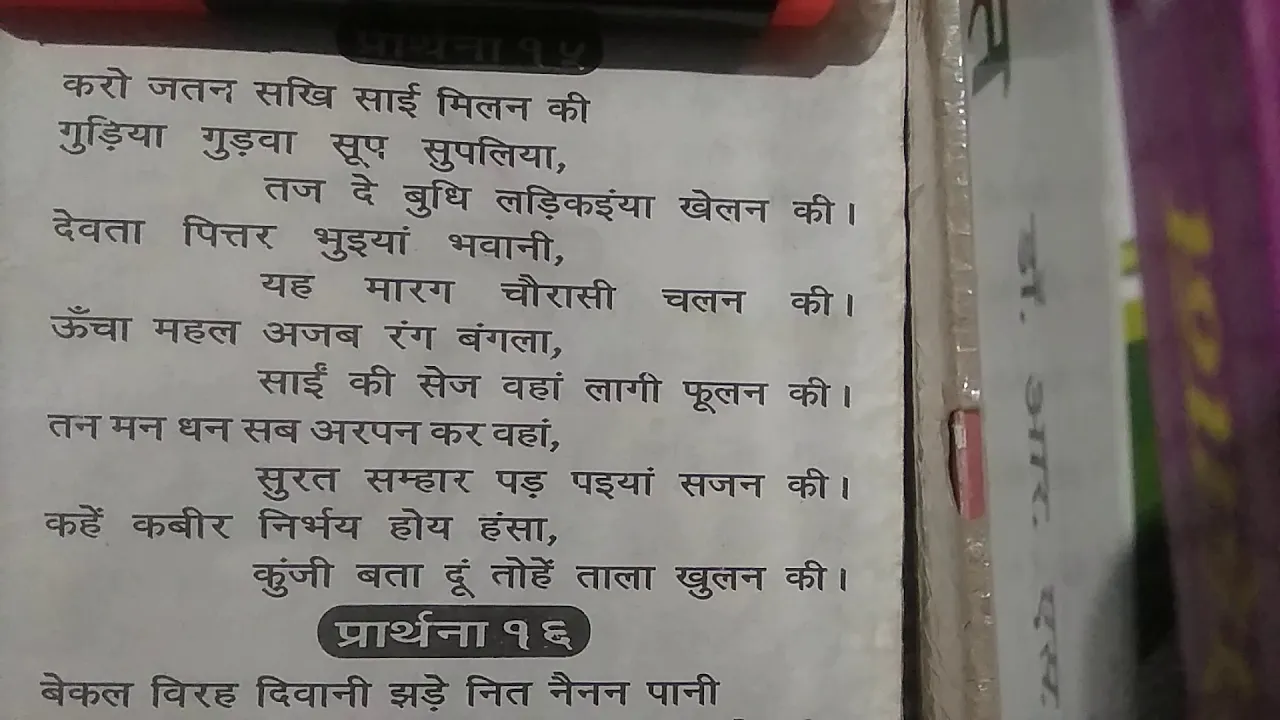 प्रार्थना १५
करो जतन सखि साई मिलन की
गुड़िया गुड़वा सूप सुपलिया,
तज दे बुधि लड़िकइंया खेलन की।
देवता पित्तर भुइयां भवानी,
यह मारग चौरासी चलन की।
ऊँचा महल अजब रंग बंगला,
साईं की सेज वहां लागी फूलन की।
तन मन धन सब अरपन कर वहां,
सुरत सम्हार पड़ पइयां सजन की।
कहें कबीर निर्भय होय हंसा,
कुंजी बता दूं तोहें ताला खुलन की।
प्रार्थना १६
बेकल विरह दिवानी झड़े नित नैनन पानी